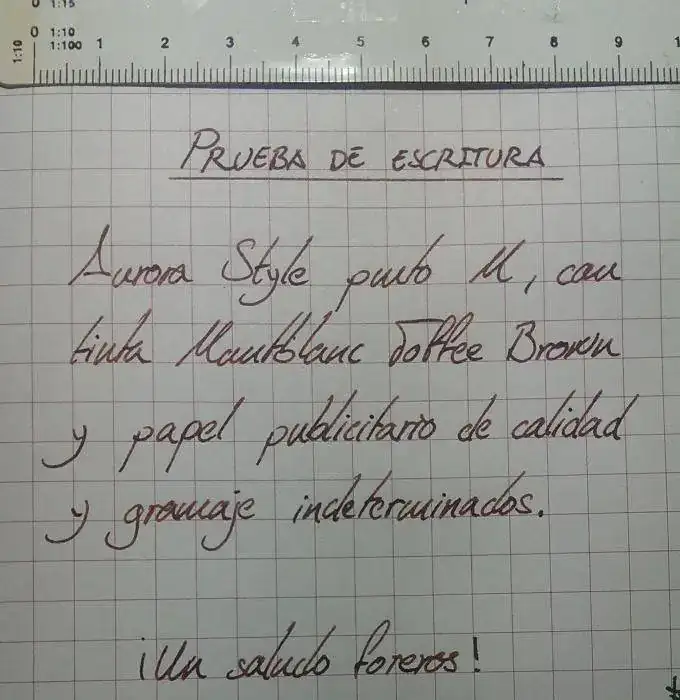 0 1:15
0 1:10
1:10 1:100 1 2 3 4 5 6 7 8 9 1
PRUEBA DE ESCRITURA
Aurora Style punto M, con
tinta Montblanc Toffee Brown
y papel publicitario de calidad
y gramaje indeterminados.
¡Un saludo foreros!